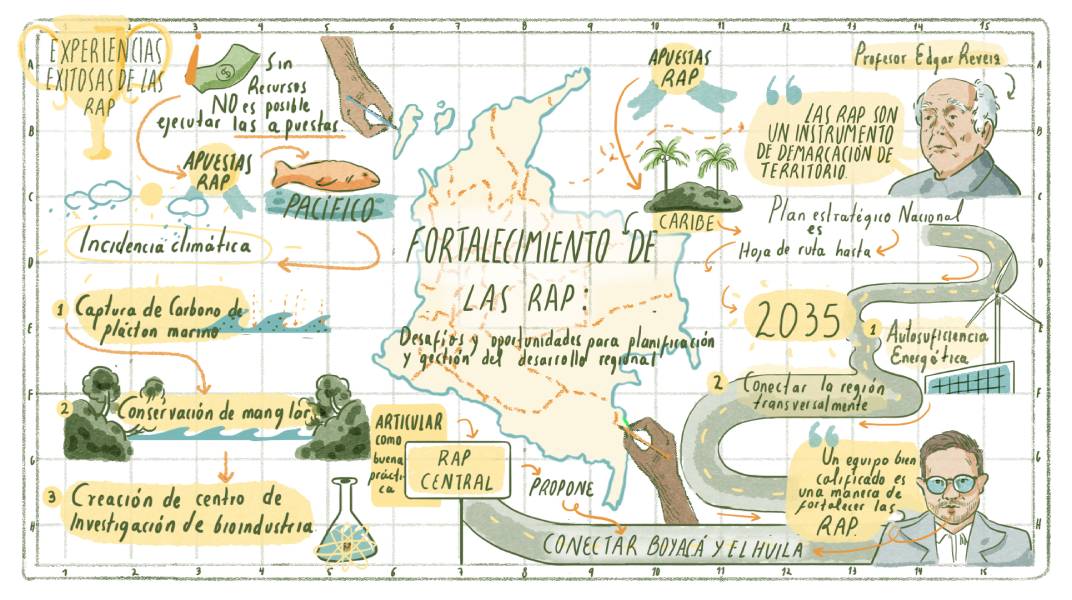 EXPERIENCIAS
EXITOSAS DE LAS
RAP
Sin
Recursos
NO es posible
ejecutar las apuestas.
APUESTAS
RAP
PACÍFICO
Incidencia climática
1 Captura de Carbono de
plácton marino
2 Conservación de manglar
3 Creación de centro de
Investigación de bioindustria
FORTALECIMIENTO DE
LAS RAP:
Desafíos y oportunidades para planificación
y gestión del desarrollo regional
ARTICULAR
como
buena
prácti-
ca
RAP
CENTRAL
PROPONE
CONECTAR BOYACÁ Y EL HUILA
APUESTAS
RAP
CARIBE
Profesor Edgar Reveiz
“ LAS RAP SON
UN INSTRUMENTO
DE DEMARCACIÓN DE
TERRITORIO.
Plan estratégico Nacional
es
Hoja de ruta hasta
2035
1 Autosuficiencia
Energética
2 Conectar la región
transversalmente
“ Un equipo bien
calificado es
una manera de
fortalecer las
RAP.
1 2 3 4 5 6 7 8 9 10 11 12 13 14 15
A
B
C
D
E
F
G
H
1 2 3 4 5 6 7 8 9 10 11 12 13 14 15